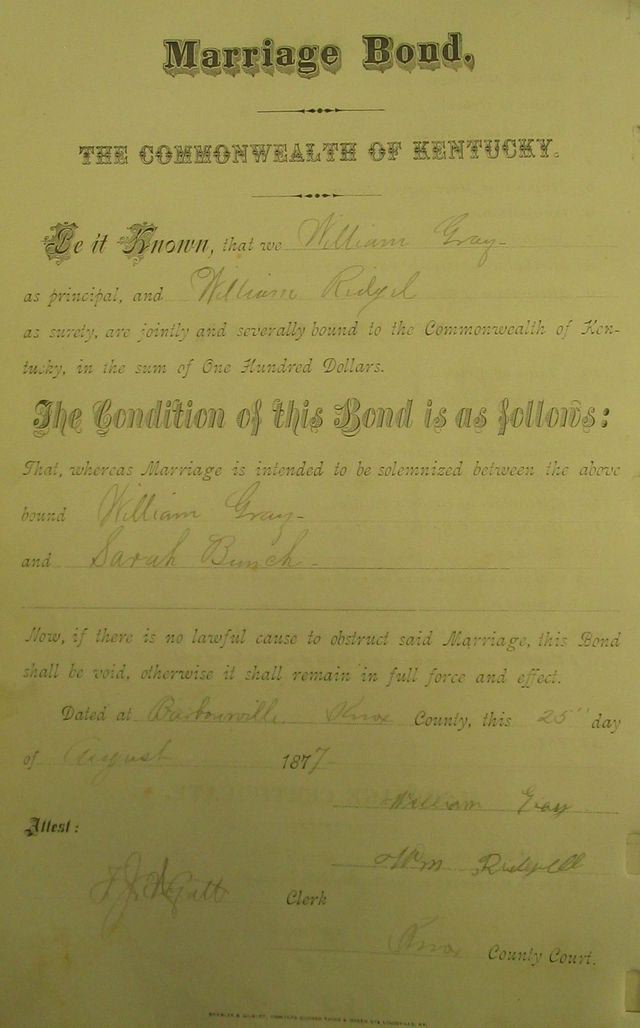 Marriage Bond.
THE COMMONWEALTH OF KENTUCKY.
Be it Known, that we William Gray
as principal, and William Ridgel
as surety, are jointly and severally bound to the Commonwealth of Ken-
tucky, in the sum of One Hundred Dollars.
The Condition of this Bond is as follows:
That, whereas Marriage is intended to be solemnized between the above
bound William Gray
and Sarah Bunch
Now, if there is no lawful cause to obstruct said Marriage, this Bond
shall be void, otherwise it shall remain in full force and effect.
Dated at Barbourville Knox County, this 25" day
of August 1877
William Gray
Attest:
Wm Ridgell
Clerk
Knox County Court.